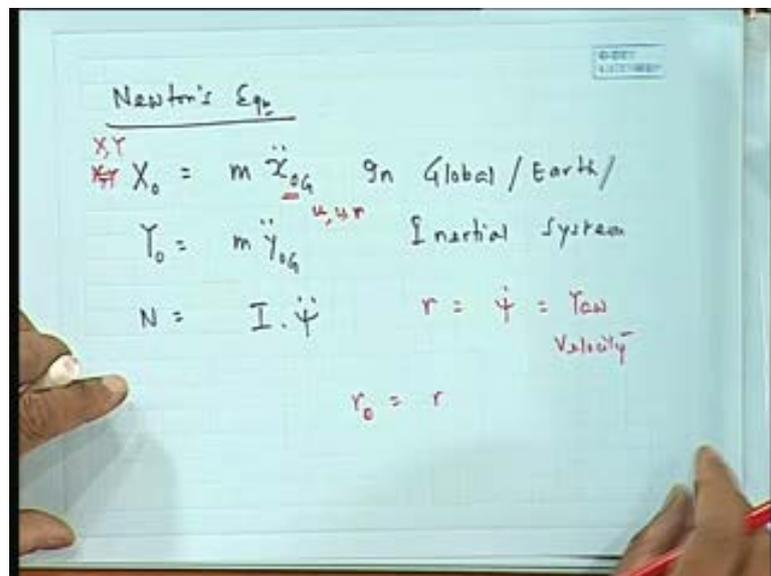 Newton's Eqn
X,Y
X₀ = m ẍ₀G In Global / Earth /
u, v, r
Y₀ = m ÿ₀G Inertial System
N = I . ψ̈ r = ψ̇ = Yaw
Velocity
r₀ = r